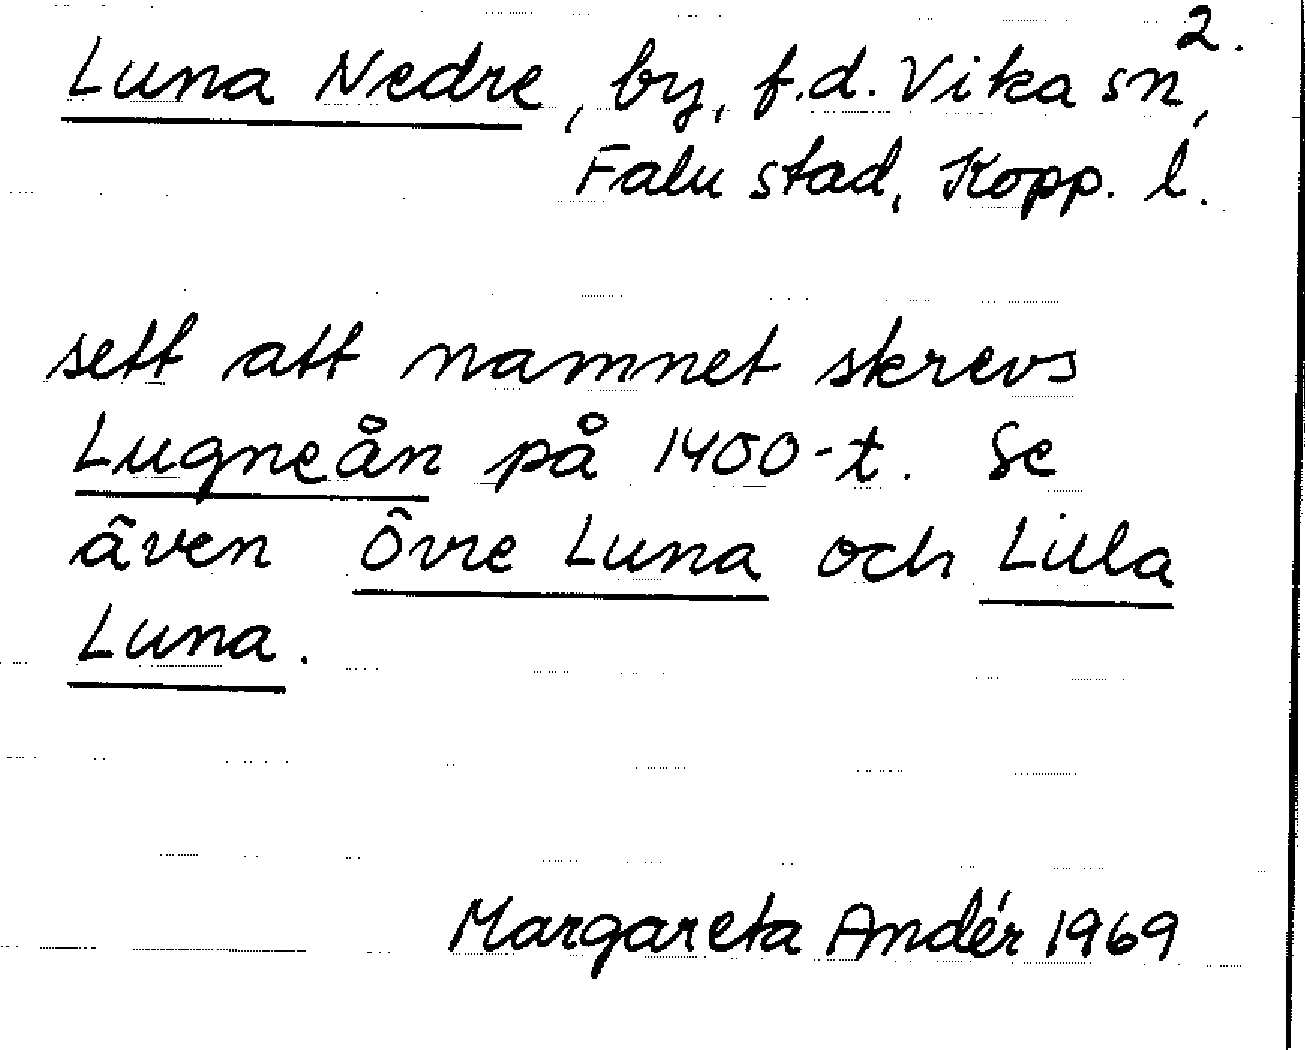 2.
Luna Nedre, by, f.d. Vika sn,
Falu stad, Kopp. l.
sett att namnet skrevs
Lugneån på 1400-t. Se
även Övre Luna och Lilla
Luna.
Margareta Andér 1969